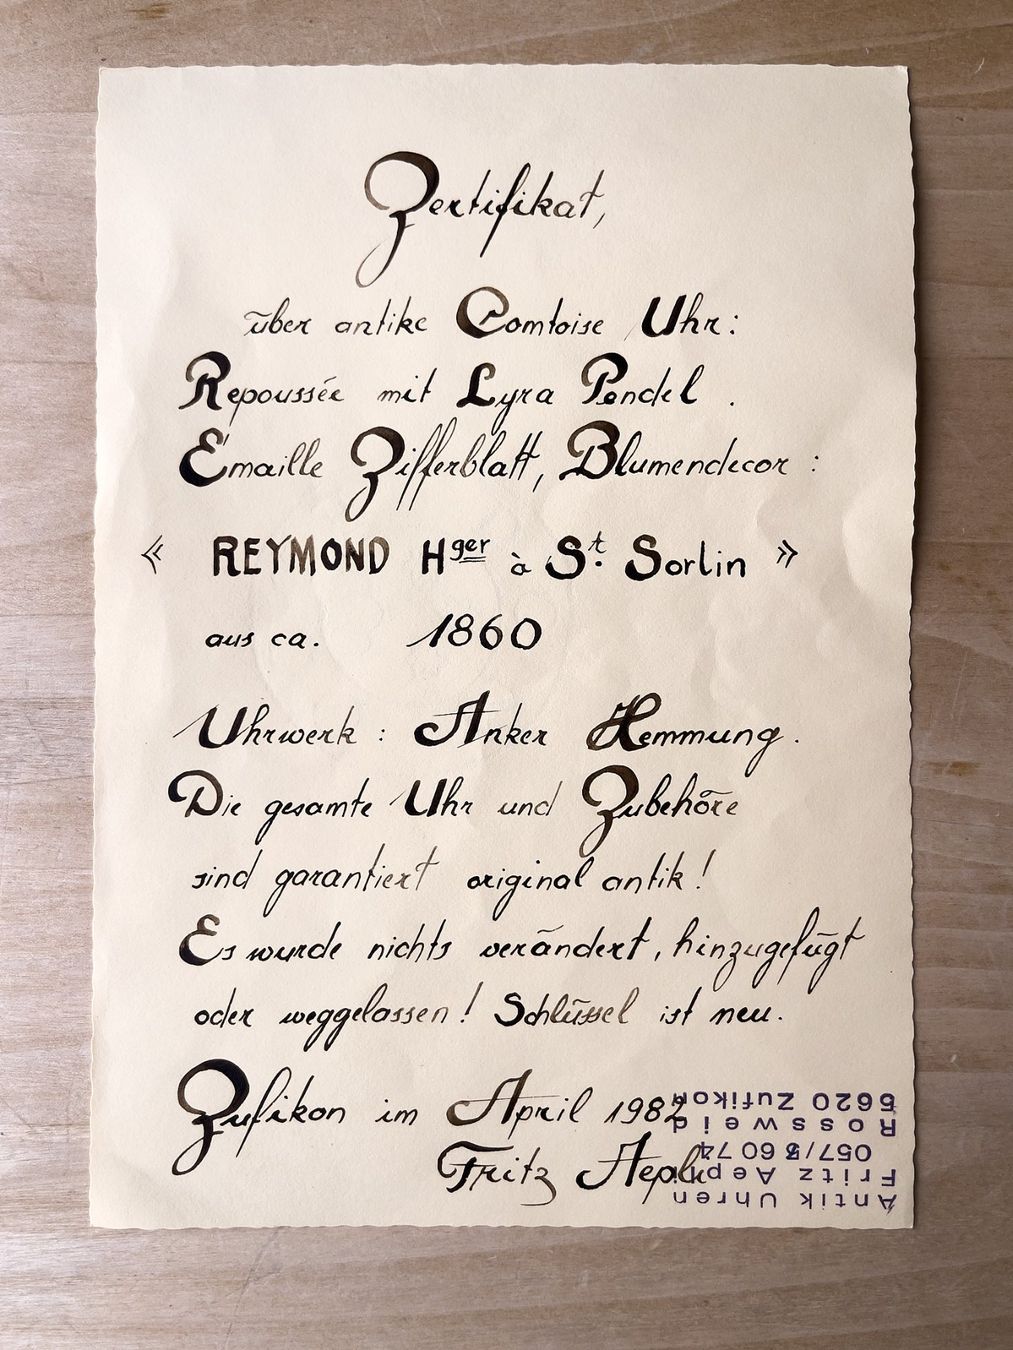 Zertifikat,
über antike Comtoise Uhr:
Repoussée mit Lyra Pendel .
Emaille Zifferblatt, Blumendecor :
« REYMOND Hger à St. Sorlin »
aus ca. 1860
Uhrwerk : Anker Hemmung .
Die gesamte Uhr und Zubehöre
sind garantiert original antik !
Es wurde nichts verändert, hinzugefügt
oder weggelassen ! Schlüssel ist neu.
Zufikon im April 1982
Fritz Aepli
Antik Uhren
Fritz Aepli
057/5 60 74
Rossweid
5620 Zufikon